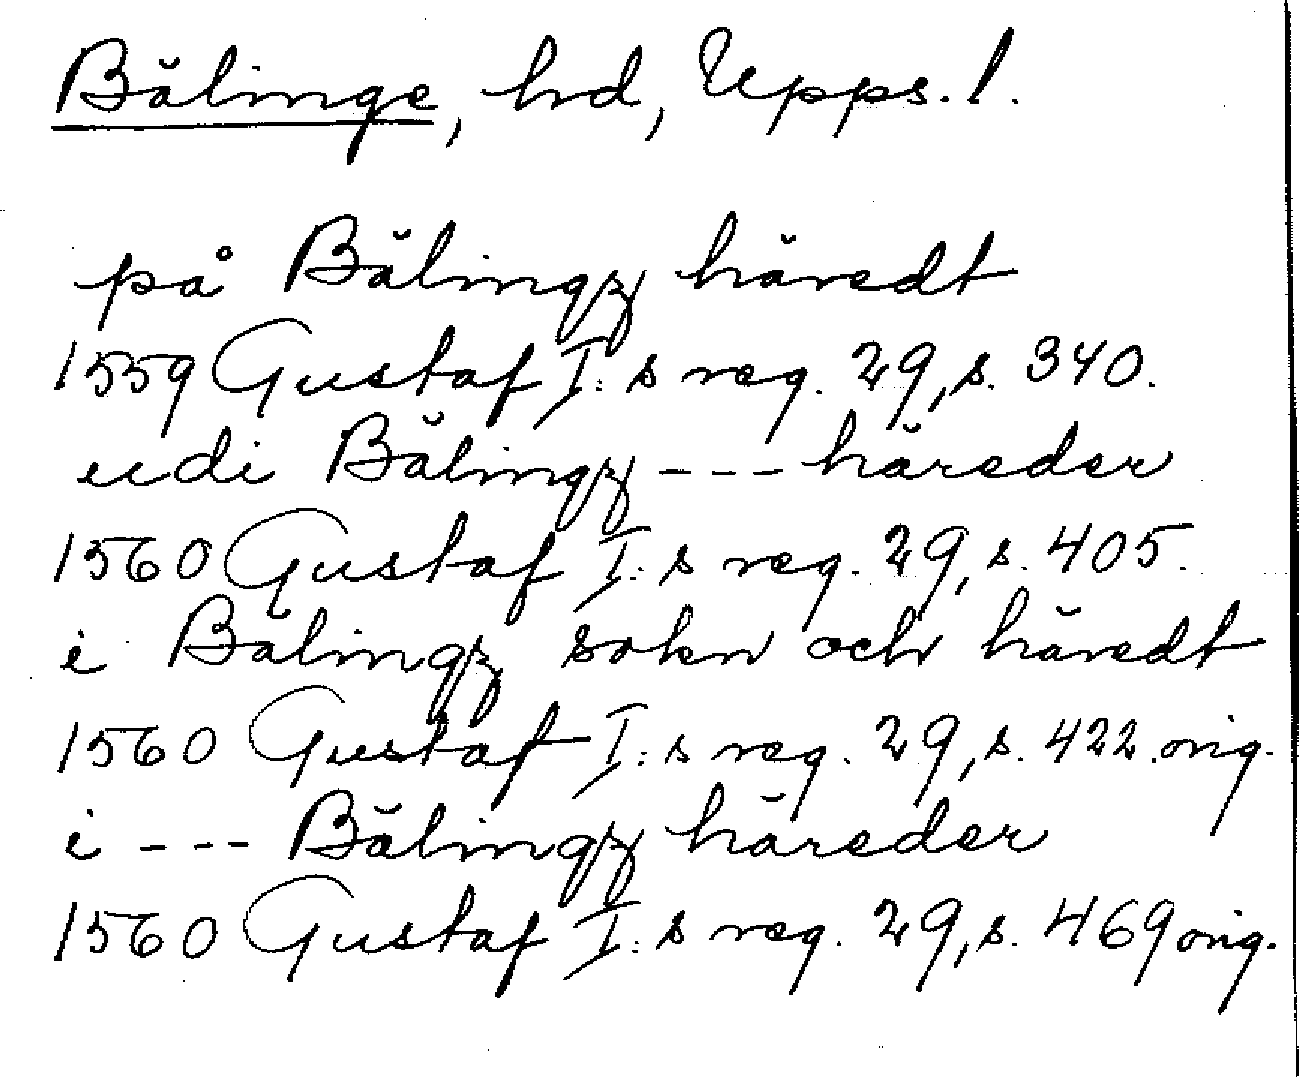 Bälinge, hd, Upps. l.
på Bälingz häredt
1559 Gustaf I:s reg. 29, s. 340.
udi Bälingz --- häreder
1560 Gustaf I:s reg. 29, s. 405.
i Balingz sokn och häredt
1560 Gustaf I:s reg. 29, s. 422. orig.
i --- Bälingz häreder
1560 Gustaf I:s reg. 29, s. 469 orig.